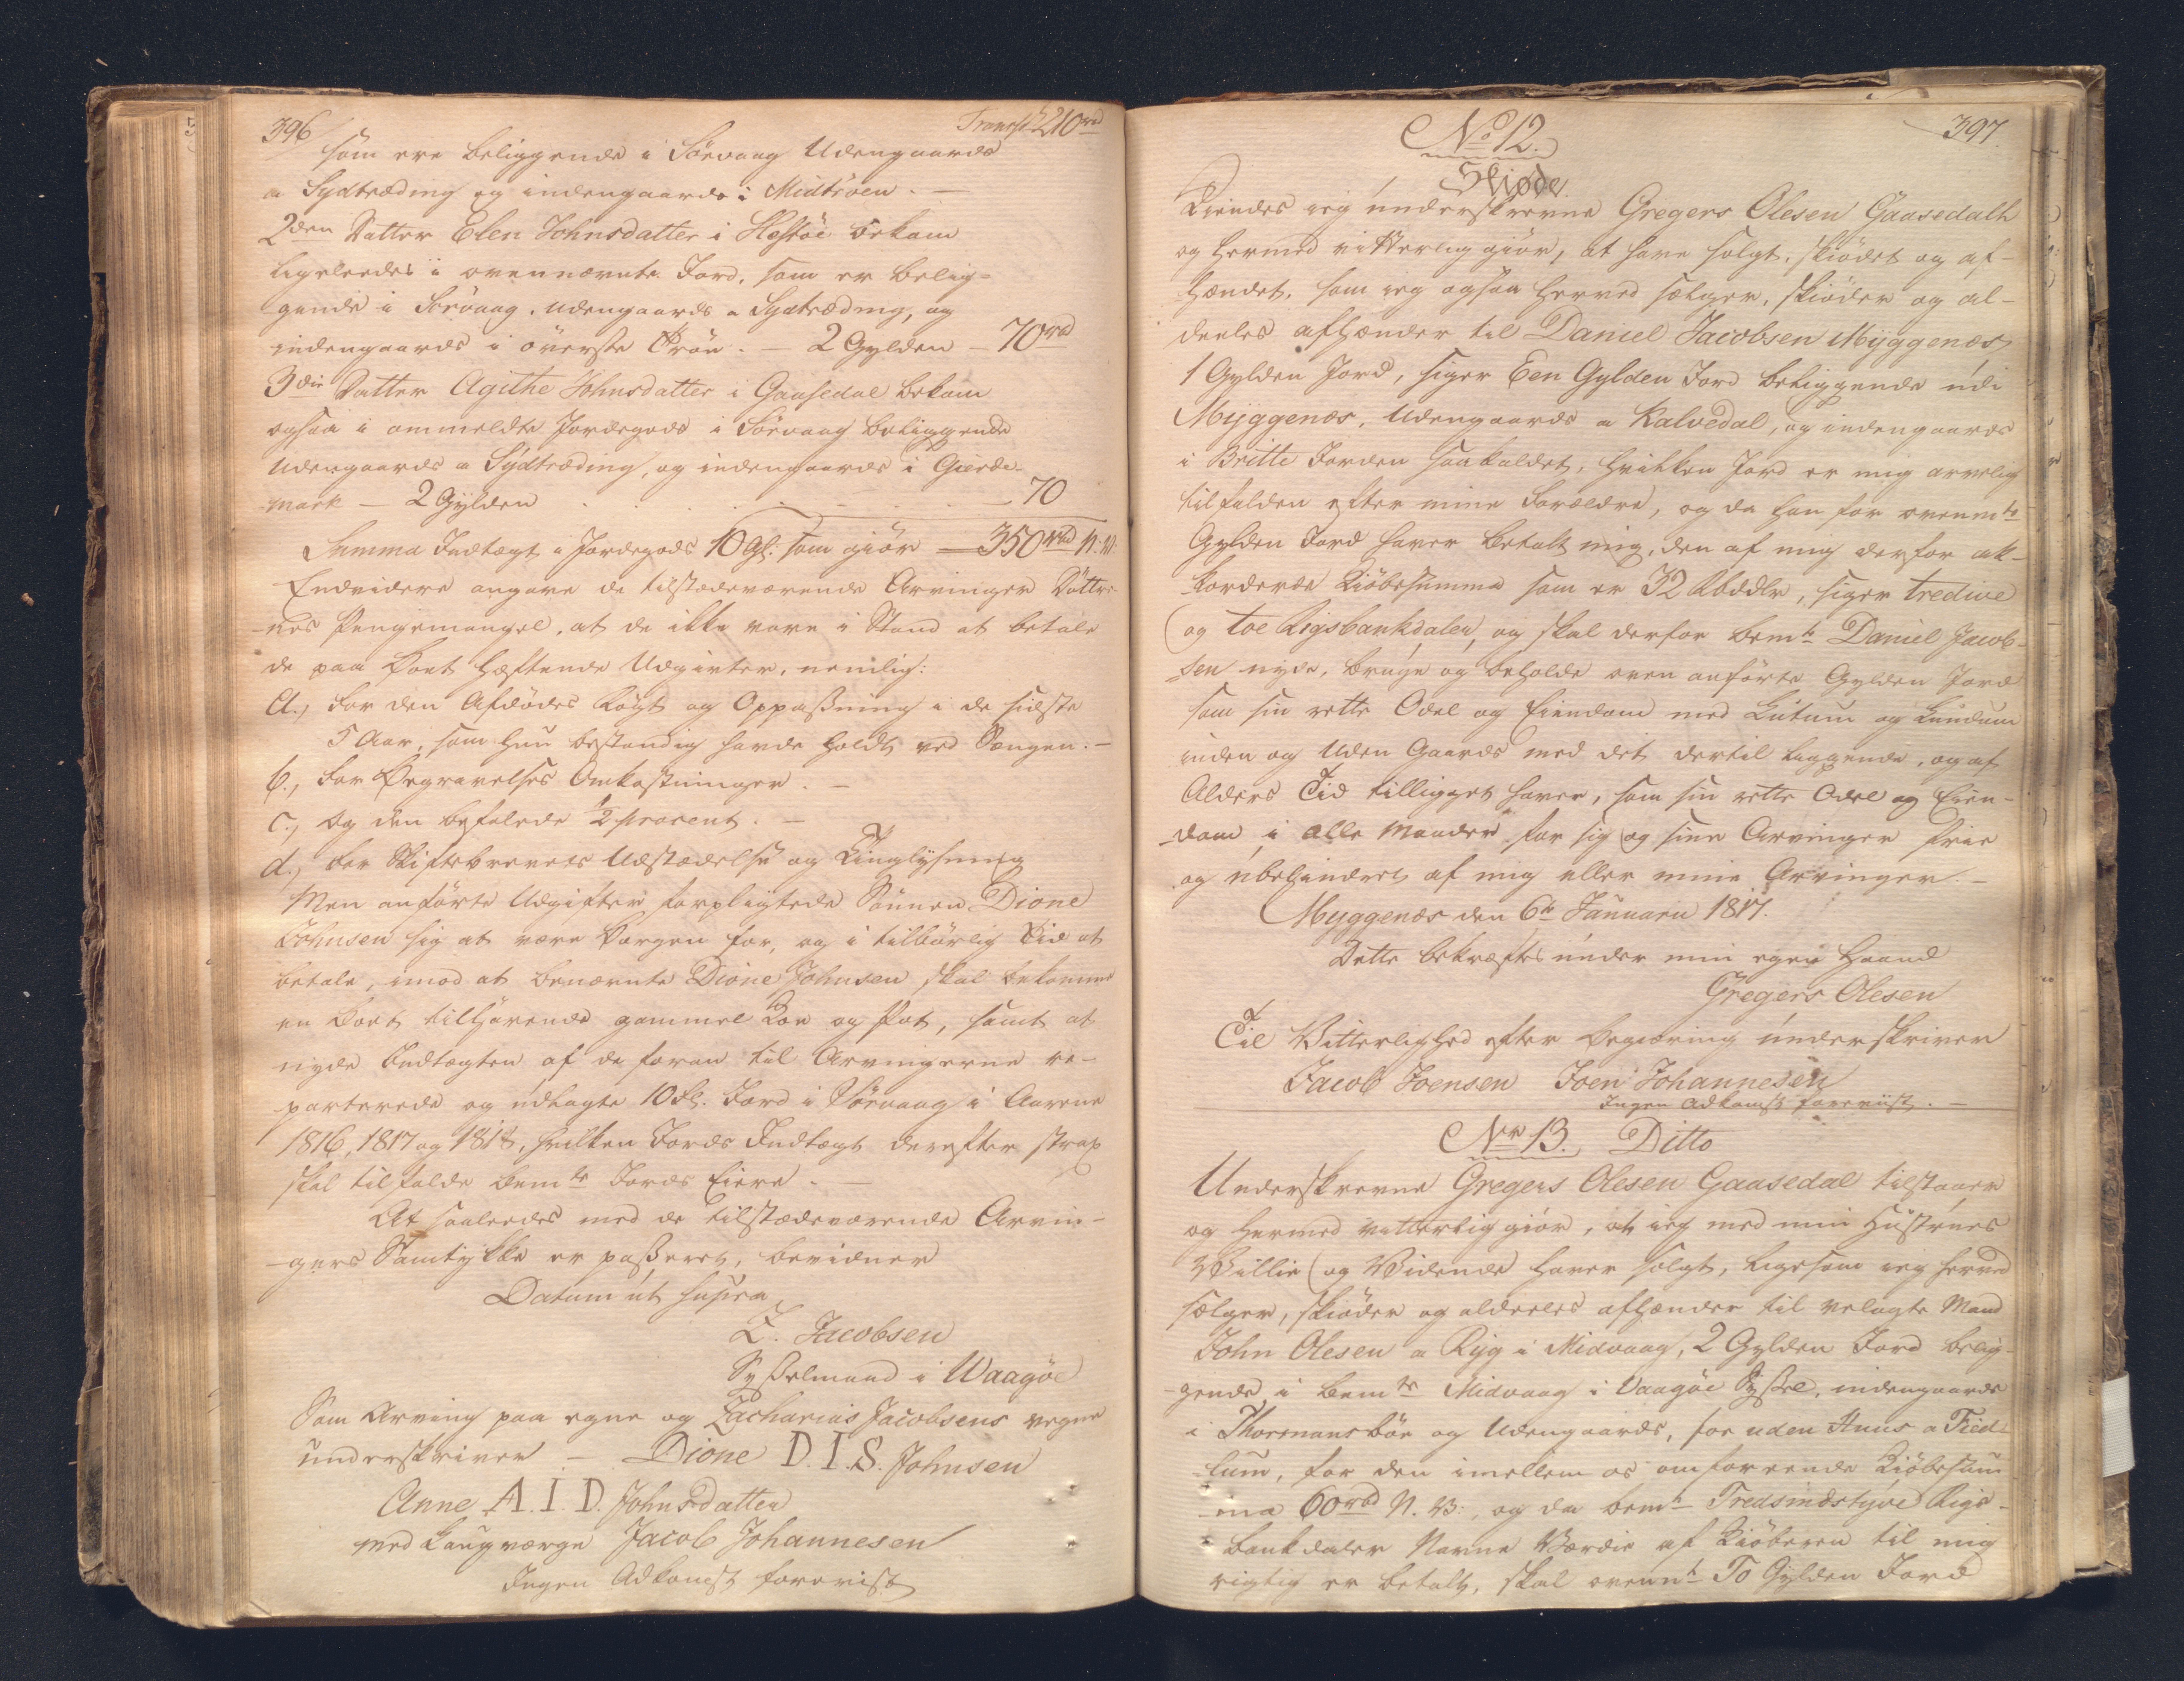 396
Transp: 210 rd
som ere beliggende i Sörvaag Udengaards
a Sydtræding og indengaards i Midtröen. —
2den Datter Elen Johnsdatter i Hestöe bekom
ligeledes i ovennævnte Jord, som er belig-
gende i Sörvaag, udengaards a Sydtræding, og
indengaards i överste Tröe. — 2 Gylden — 70 rd
3die Datter Agithe Johnsdatter i Gaasedal bekom
ogsaa i ommeldte Jordegods i Sörvaag beliggende
Udengaards a Sydtræding, og indengaards i Gierde-
mark — 2 Gylden — 70
Summa Indtægt i Jordegods 10 Gl: som giör — 350 rbd N. V.
Endvidere angave de tilstædeværende Arvinger Döttre-
nes Pengemangel, at de ikke vare i Stand at betale
de paa Boet hæftende Udgivter, nemlig:
a., For den Afdödes Rögt og Oppasning i de sidste
5 Aar, som hun bestandig havde holdt ved Sengen. —
b., For Begravelses Omkostninger. —
c., Og den befalede ½ procent. —
d., For Skiftebrevets Udstædelse og Tinglysning
Men anförte Udgifter forpligtede Sönnen Dione
Johnsen sig at være Borgen for, og i tilbörlig Tid at
betale, imod at benævnte Dione Johnsen skal bekomme
en Boet tilhörende gammel Koe og Pot, samt at
nyde Indtægten af de foran til Arvingerne re-
parterede og udlagte 10 Gl. Jord i Sörvaag i Aarene
1816, 1817 og 1818, hvilken Jords Indtægt derefter strax
skal tilfalde bemte Jords Eiere. —
At saaledes med de tilstædeværende Arvin-
gers Samtykke er passeret, bevidner
Datum ut supra
Z. Jacobsen
Sysselmand i Waagöe
Som Arving paa egne og Zacharias Jacobsens vegne
underskriver — Dione D. I. S. Johnsen
Anne A. I. D. Johnsdatter
med Laugværge Jacob Johannesen
Ingen Adkomst foreviist
397.
No 12.
Skiöde
Kiendes ieg underskrevne Gregers Olesen Gaasedal
og hermed vitterlig giör, at have solgt, skiödet og af-
hændet, som ieg ogsaa herved sælger, skiöder og al-
deeles afhænder til Daniel Jacobsen Myggenæs
1 Gylden Jord, siger Een Gylden Jord beliggende udi
Myggenæs, Udengaards a Kalvedal, og indengaards
i Britte Jorden saakaldet, hvilken Jord er mig arvelig
tilfalden efter mine Forældre, og da han for ovenmte
Gylden Jord haver betalt mig, den af mig derfor ak-
korderede Kiöbesumma som er 32 Rbddlr, siger tredive
og toe Rigsbankdaler, og skal derfor bemte Daniel Jacob-
sen nyde, bruge og beholde oven anförte Gylden Jord
som sin rette Odel og Eiendom med Lutum og Lundum
inden og Uden Gaards med det dertil liggende, og af
Alders Tid tilligget haver, som sin rette Odel og Eien-
dom i alle Maader for sig og sine Arvinger frie
og ubehindret af mig eller mine Arvinger. —
Myggenæs den 6te Januarii 1817.
Dette bekræftes under min egen Haand
Gregers Olesen
Til Vitterlighed efter Begiæring underskriver
Jacob Joensen Joen Johannesen
Ingen Adkomst foreviist. —
No 13. Ditto
Underskrevne Gregers Olesen Gaasedal tilstaaer
og hermed vitterlig giör, at ieg med min Hustrues
Villie og Vidende haver solgt, ligesom ieg herved
sælger, skiöder og aldeeles afhænder til velagte Mand
John Olesen a Ryg i Midvaag, 2 Gylden Jord belig-
gende i bemte Midvaag i Vaagöe Syssel, indengaards
i Thormansböe og Udengaards, for uden Huus a Fied-
lum, for den imellem os omforeende Kiöbesum-
ma 60 rbd N. V., og da bemte Tredsindstyve Rigs-
bankdaler Navne Værdie af Kiöberen til mig
rigtig er betalt, skal ovennte To Gylden Jord